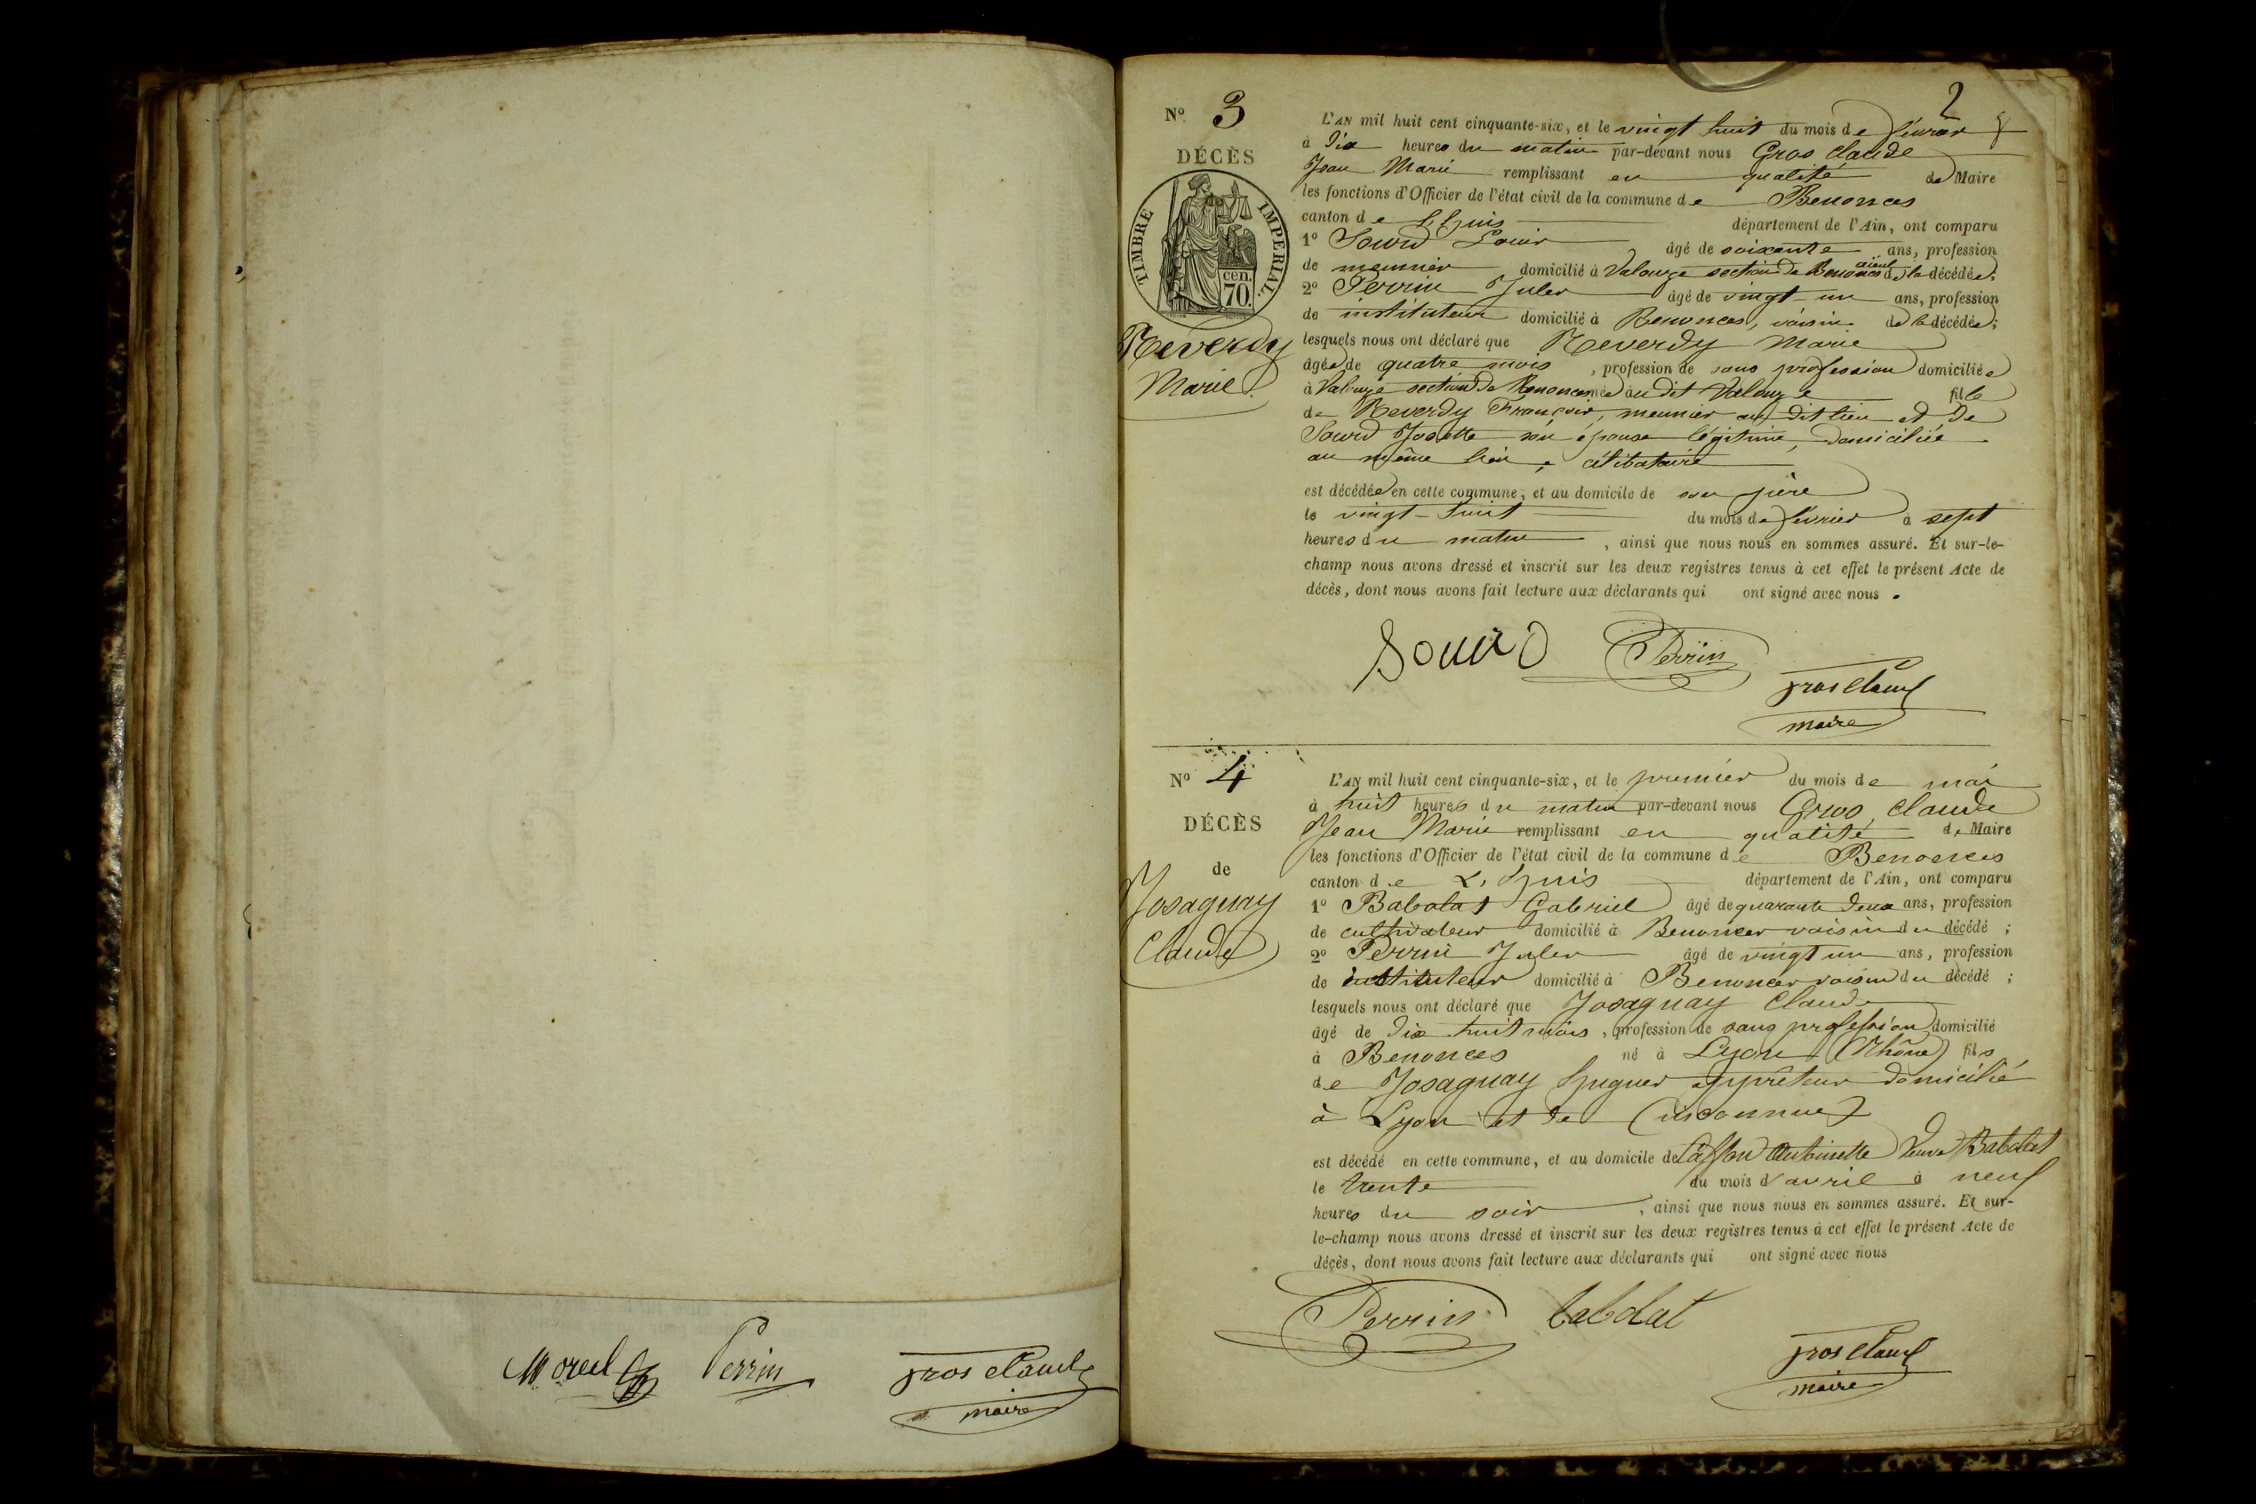 Morel Perrin Gros Claude
maire
2
Nº 3
DÉCÈS
TIMBRE IMPERIAL
cen.
70.
Reverdy
Marie
L'AN mil huit cent cinquante-six, et le vingt huit du mois de février
à Dix heures du matin par-devant nous Gros Claude
Jean Marie remplissant en qualité de Maire
les fonctions d'Officier de l'état civil de la commune de Benonces
canton de L'huis département de l'Ain, ont comparu
1º Sourd Louis âgé de soixante ans, profession
de meunier domicilié à Valouze section de Benonces aïeul de la décédée;
2º Perrin Jules âgé de vingt-un ans, profession
de instituteur domicilié à Benonces, voisin de la décédée;
lesquels nous ont déclaré que Reverdy Marie
âgée de quatre mois, profession de sans profession domiciliée
à Valouze section de Benonces née au dit Valouze fille
de Reverdy François, meunier au dit lieu et de
Sourd Josette son épouse légitime, domiciliée
au même lieu, célibataire
est décédée en cette commune, et au domicile de son père
le vingt-huit du mois de février à sept
heures du matin, ainsi que nous nous en sommes assuré. Et sur-le-
champ nous avons dressé et inscrit sur les deux registres tenus à cet effet le présent Acte de
décès, dont nous avons fait lecture aux déclarants qui ont signé avec nous.
Sourd Perrin
Gros Claude
maire
Nº 4
DÉCÈS
de
Josaguay
Claude
L'AN mil huit cent cinquante-six, et le premier du mois de mai
à huit heures du matin par-devant nous Gros, Claude
Jean Marie remplissant en qualité de Maire
les fonctions d'Officier de l'état civil de la commune de Benonces
canton de L'huis département de l'Ain, ont comparu
1º Babolat Gabriel âgé de quarante deux ans, profession
de cultivateur domicilié à Benonces voisin du décédé;
2º Perrin Jules âgé de vingt un ans, profession
de instituteur domicilié à Benonces voisin du décédé;
lesquels nous ont déclaré que Josaguay Claude
âgé de dix huit mois, profession de sans profession domicilié
à Benonces né à Lyon (Rhône) fils
de Josaguay Hugues apprêteur domicilié
à Lyon et de (inconnue)
est décédé en cette commune, et au domicile de Antoinette Veuve Babolat
le trente du mois d'avril à neuf
heures du soir, ainsi que nous nous en sommes assuré. Et sur-
le-champ nous avons dressé et inscrit sur les deux registres tenus à cet effet le présent Acte de
décès, dont nous avons fait lecture aux déclarants qui ont signé avec nous
Perrin babolat
Gros Claude
maire